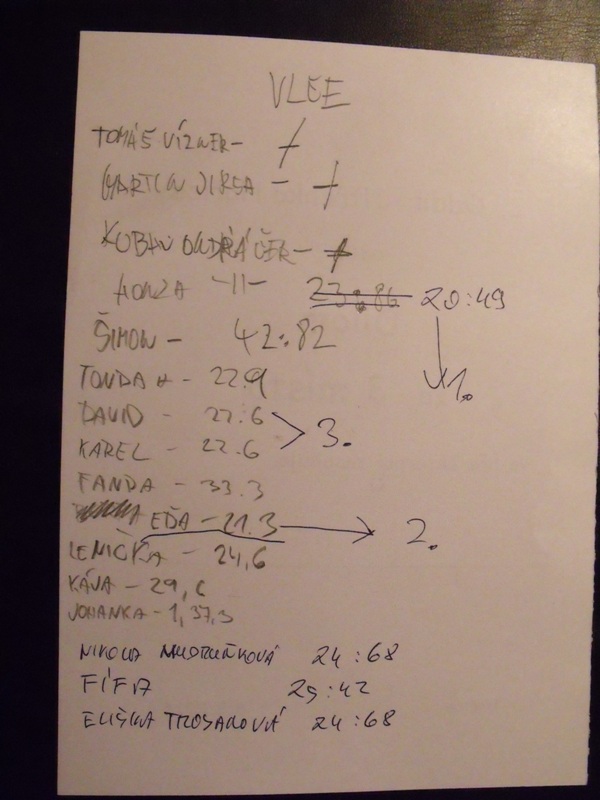 VLEE
TOMÁŠ VÍZNER - +
MARTIN JIRSA - +
KUBA ONDRÁČEK - +
HONZA -11- 23:86 20:49
1.
ŠIMON - 42:82
TONDA - 22.9
DAVID - 22.6
3.
KAREL - 22.6
FANDA - 33.3
EĎA - 21.3 2.
LENIČKA - 24,6
KÁVA - 29,6
JOHANKA - 1,37,3
NIKOLA 24:68
FÍFA 25:42
ELIŠKA 24:68